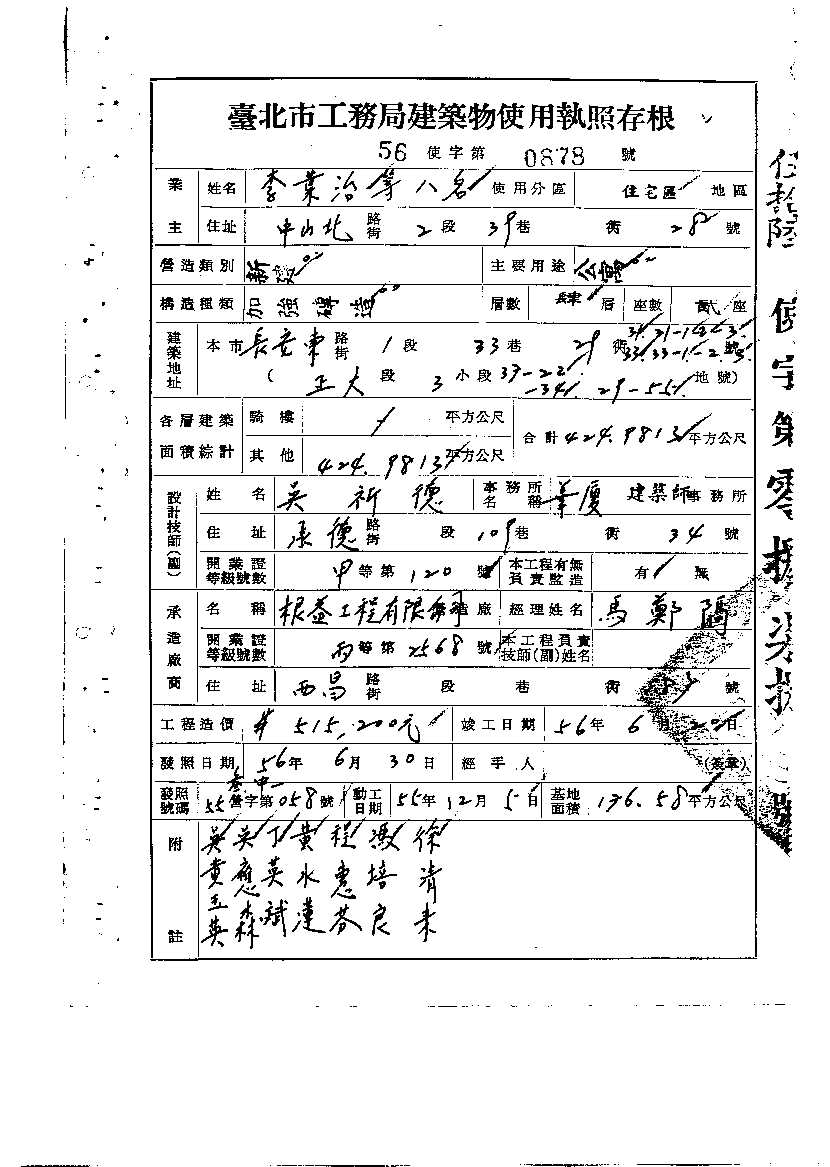 臺北市工務局建築物使用執照存根
56 使字第 0878 號
業主 姓名 李業治等八名 使用分區 住宅區 地區
住址 中山北 路街 2 段 39 巷 衖 28 號
營造類別 新建 主要用途 公寓
構造種類 加強磚造 層數 層 座數 座
建築地址 本市 長安東 路街 1 段 33 巷 29 衖 號
( 正大 段 3 小段 37-22 -34 29-55 地號)
各層建築面積綜計 騎樓 / 平方公尺 合計 424.9813 平方公尺
其他 424.9813 平方公尺
設計技師(副) 姓名 吳祈德 事務所名稱 華廈 建築師事務所
住址 承德 路街 段 109 巷 衖 34 號
開業證等級號數 甲 等第 120 號 本工程有無負責監造 有 / 無
承造廠商 名稱 根益工程有限公司 造廠 經理姓名 馬鄭
開業證等級號數 丙 等第 2568 號 本工程負責技師(副)姓名
住址 西昌 路街 段 巷 衖 號
工程造價 # 515,200元 竣工日期 56年 6月 20日
發照日期 56年 6月 30日 經手人 (簽章)
發照號碼 55 營字第 058 號 動工日期 55年 12月 5日 基地面積 136.58 平方公尺
附註 吳 吳 丁 黃 程 馮 徐
貴 應 英 水 惠 培 清
玉英 森 斌 蓮 芬 良 來
伍拾陸 使字第零捌柒捌 號